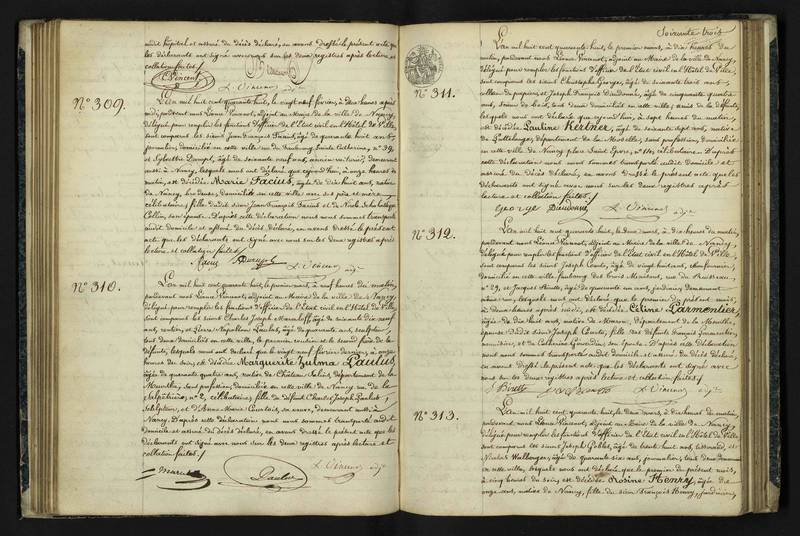 audit hôpital et assuré du décès déclaré, en avons dressé le présent acte que
les déclarants ont signé avec nous sur les deux registres après lecture et
collation faites.
L. Vincent
N° 309.
L'an mil huit cent quarante huit, le vingt neuf février, à deux heures après
midi, pardevant nous Léonce Vincent, adjoint au Maire de la ville de Nancy,
délégué pour remplir les fonctions d'officier de l'état civil en l'Hôtel de Ville,
sont comparus les sieurs Jean François Faciüs, âgé de quarante huit ans
jardinier, domicilié en cette ville au faubourg Sainte Catherine, n° 39,
et Sylvestre âgé de soixante neuf ans, ancien militaire, demeurant
aussi à Nancy, lesquels nous ont déclaré que cejourd'hui, à onze heures du
matin, est décédée Marie Facius, âgée de dix huit ans, native
de Nancy, brodeuse, domiciliée en cette ville avec ses père et mère,
célibataire, fille dudit sieur Jean François Facius et de Nicole
Collin, son épouse. D'après cette déclaration nous nous sommes transporté
audit domicile et assuré du décès déclaré, en avons dressé le présent
acte que les déclarants ont signé avec nous sur les deux registres après
lecture et collation faites.
L. Vincent adj.
N° 310.
L'an mil huit cent quarante huit, le premier mars, à neuf heures du matin,
pardevant nous Léonce Vincent, adjoint au Maire de la ville de Nancy,
délégué pour remplir les fonctions d'officier de l'état civil en l'Hôtel de Ville
sont comparus les sieurs Charles Joseph âgé de soixante dix neuf
ans, rentier, et Pierre Napoléon Paulus, âgé de quarante ans, sculpteur,
tous deux domiciliés en cette ville, le premier cousin et le second frère de la
défunte, lesquels nous ont déclaré que le vingt neuf février dernier, à onze
heures du soir, est décédée Marguerite Zulma Paulus,
âgée de quarante quatre ans, native de Château Salins, département de la
Meurthe, sans profession, domiciliée en cette ville de Nancy rue de la
Salpêtrière, n° 2, célibataire, fille de défunt Charles Joseph Paulus,
sculpteur, et d'Anne Marie Courtois, sa veuve, demeurant aussi à
Nancy. D'après cette déclaration nous nous sommes transporté audit
domicile et assuré du décès déclaré, en avons dressé le présent acte que les
déclarants ont signé avec nous sur les deux registres après lecture et
collation faites.
Paulus
L. Vincent adj.
Soixante trois
N° 311.
L'an mil huit cent quarante huit, le premier mars, à dix heures du
matin, pardevant nous Léonce Vincent, adjoint au Maire de la ville de Nancy,
délégué pour remplir les fonctions d'officier de l'état civil en l'Hôtel de Ville
sont comparus les sieurs Christophe George, âgé de soixante huit ans,
colleur de papiers, et Joseph François Dieudonné, âgé de cinquante quatre
ans, scieur de bois, tous deux domiciliés en cette ville, amis de la défunte,
lesquels nous ont déclaré que cejourd'hui, à sept heures du matin,
est décédée Pauline Kerknet, âgée de soixante sept ans, native
de Puttelange, département de la Moselle, sans profession, domiciliée
en cette ville de Nancy place Saint Epvre, n° célibataire. D'après
cette déclaration nous nous sommes transporté audit domicile et
assuré du décès déclaré, en avons dressé le présent acte que les
déclarants ont signé avec nous sur les deux registres après
lecture et collation faites.
George Dieudonné L. Vincent adj.
N° 312.
L'an mil huit cent quarante huit, le deux mars, à dix heures du matin,
pardevant nous Léonce Vincent, adjoint au Maire de la ville de Nancy,
délégué pour remplir les fonctions d'officier de l'état civil en l'Hôtel de Ville
sont comparus les sieurs Joseph âgé de vingt huit ans,
domicilié en cette ville faubourg des Trois Maisons, rue du
n° 29, et Jacques âgé de quarante ans, jardinier, demeurant
même rue, lesquels nous ont déclaré que le premier du présent mois,
à deux heures après midi, est décédée Céline Larmentier,
âgée de dix huit ans, native de département de la Meurthe,
épouse dudit sieur Joseph fille des défunts François Larmentier,
et de Catherine son épouse. D'après cette déclaration
nous nous sommes transporté audit domicile et assuré du décès déclaré,
en avons dressé le présent acte que les déclarants ont signé avec
nous sur les deux registres après lecture et collation faites.
L. Vincent adj.
N° 313.
L'an mil huit cent quarante huit, le deux mars, à dix heures du matin,
pardevant nous Léonce Vincent, adjoint au Maire de la ville de Nancy,
délégué pour remplir les fonctions d'officier de l'état civil en l'Hôtel de Ville
sont comparus les sieurs Joseph âgé de trente huit ans, tisserand, et
Nicolas âgé de quarante six ans, journalier, tous deux domiciliés
en cette ville, lesquels nous ont déclaré que le premier du présent mois,
à cinq heures du soir, est décédée Rosine Henry, âgée de
onze ans, native de Nancy, fille du sieur François Henry, jardinier,